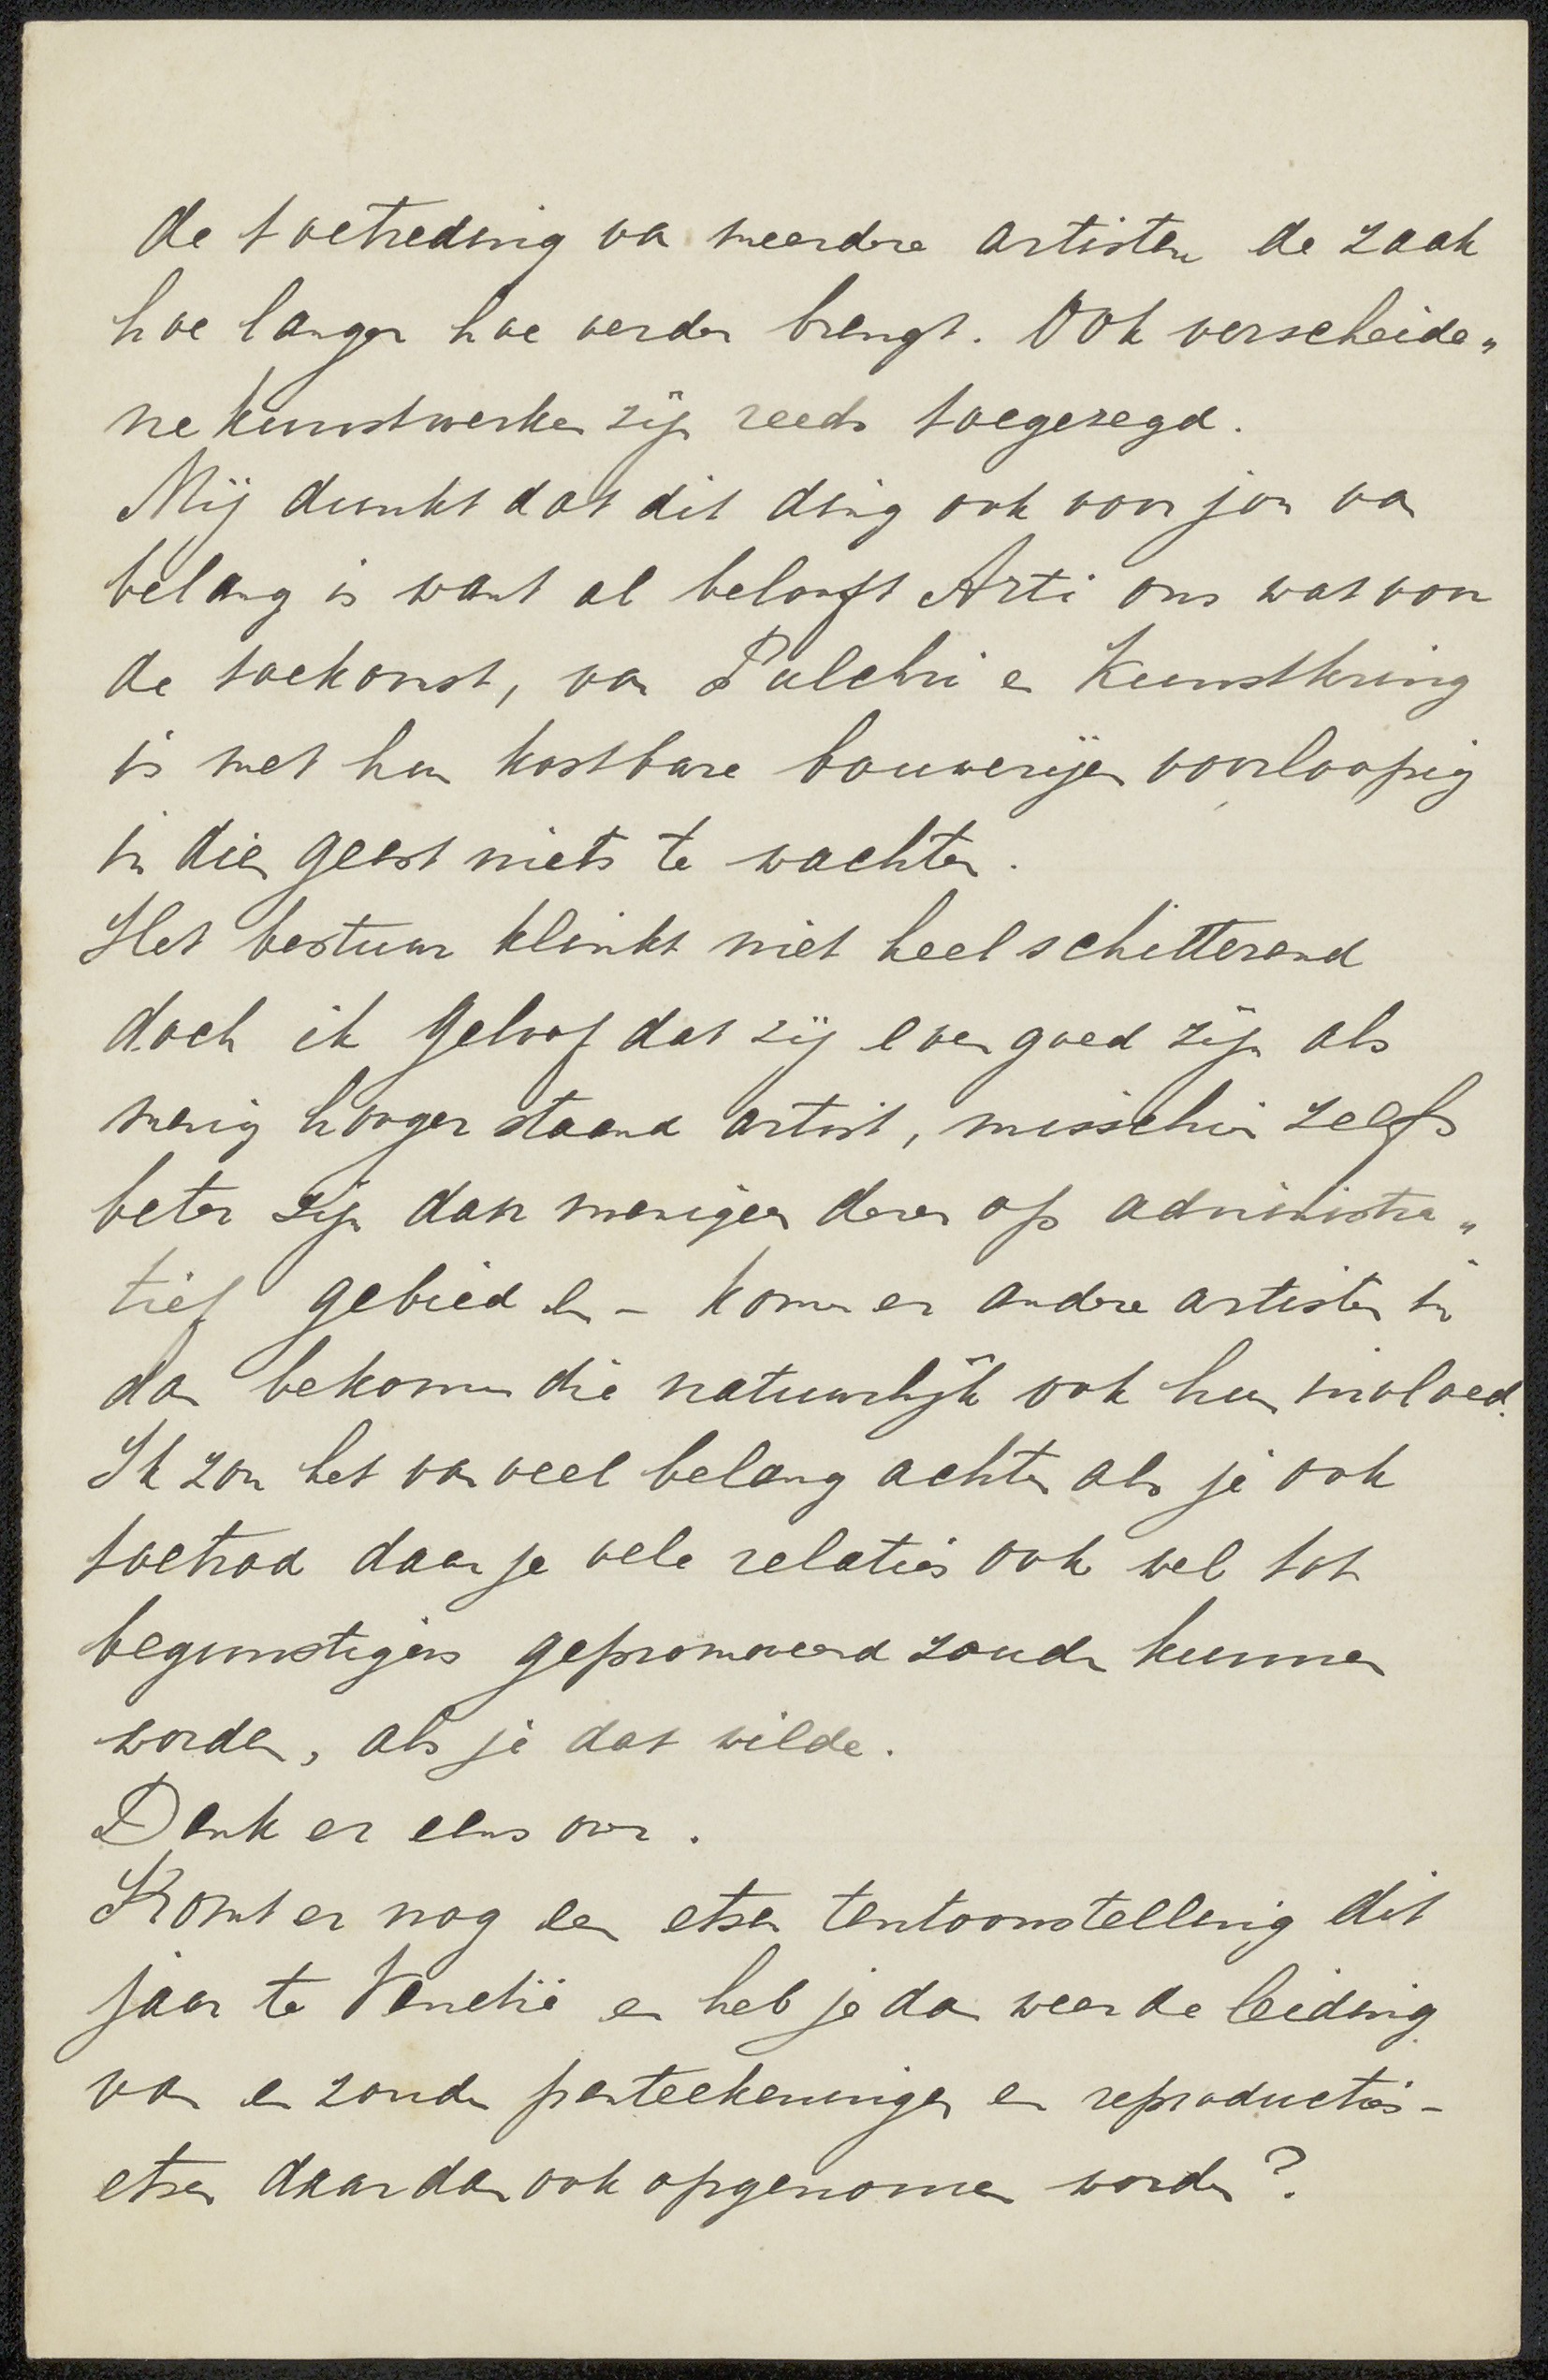 de toetreding van meerdere artisten de zaak
hoe langer hoe verder brengt. Ook verscheide„
ne kunstwerken zijn reeds toegezegd.
Mij dunkt dat dit ding ook voor jou van
belang is want al belooft Arti ons wat voor
de toekomst, van Pulchri en Kunstkring
is met hun kostbare bouwerijen voorloopig
in dien geest niets te wachten.
Het bestuur klinkt niet heel schitterend
doch ik geloof dat zij even goed zijn als
menig hooger staand artist, misschien zelfs
beter zijn dan menigeen derer op administra„
tief gebied en – komen er andere artisten in
dan bekomen die natuurlijk ook hun invloed.
Ik zou het van veel belang achten als je ook
toetrad daar je vele relaties ook wel tot
begunstigers gepromoveerd zouden kunnen
worden, als je dat wilde.
Denk er eens over.
Komt er nog een etsen tentoonstelling dit
jaar te Venetië en heb je dan weer de leiding
van en zouden penteekeningen en reproducties-
etsen daar dan ook opgenomen worden?